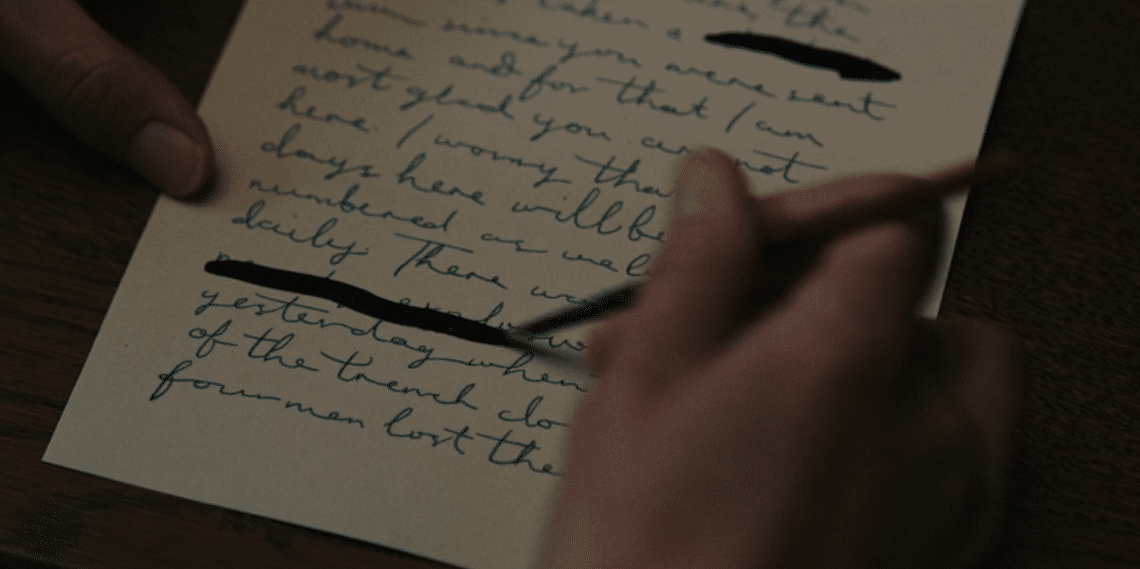 the
taken a
turn since you were sent
home and for that I am
most glad you are not
here. I worry that
days here will be
numbered as well
daily. There
yesterday when
of the trench clo
four men lost the